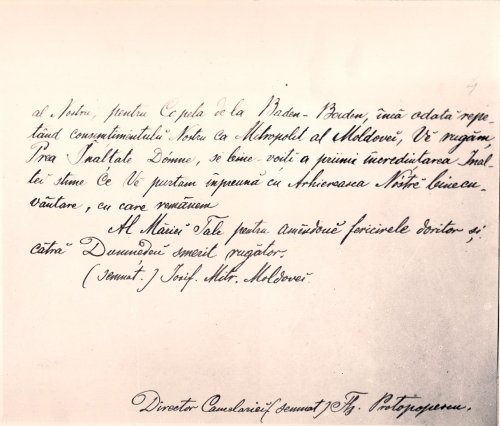 4
al Nostru, pentru Capela de la Baden-Baden, încă odată repe-
tând consentimentulŭ Nostru ca Metropolit al Moldovei, Vĕ rugăm
Prea Înaltate Dómne, se bine-voiți a priimi incredintarea Înal-
tei stime Ce Ve purtam împreună cu Arhiereasca Nóstră binecu-
vântare, cu care remănem
Al Măriei Tale pentru amĕndouĕ fericirele doritor și
cătră Dumneḑeŭ smerit rugător.
(semnat.) Iosif. Mitr. Moldovei.
Director Cancelariei (semnat) Th. Protopopescu.